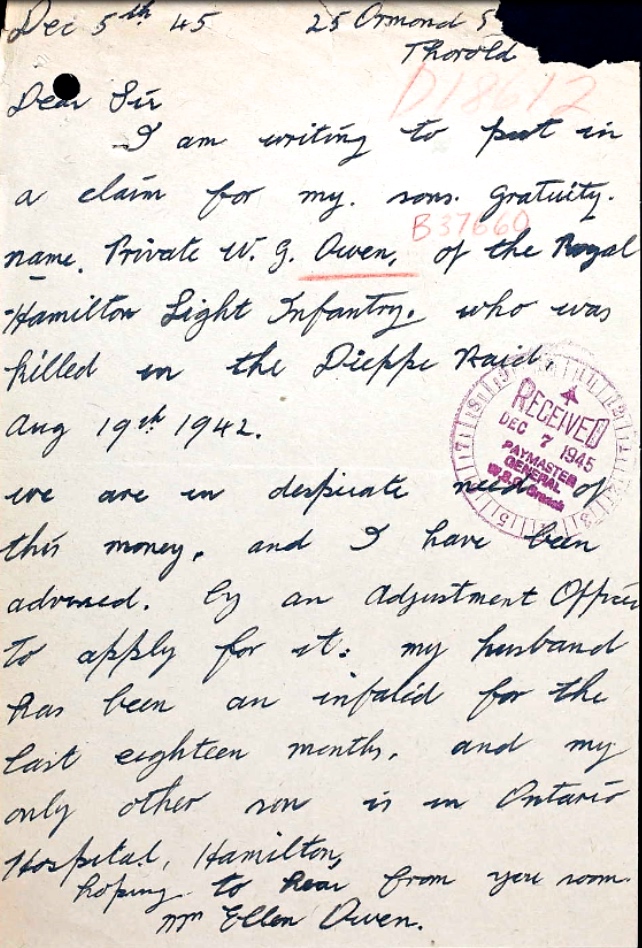 Dec 5th 45 25 Ormond S
Thorold
D18612
Dear Sir
I am writing to put in
a claim for my. sons. gratuity.
B37660
name. Private W. G. Owen, of the Royal
Hamilton Light Infantry. who was
killed in the Dieppe Raid.
Aug 19th 1942.
RECEIVED
DEC 7 1945
PAYMASTER
GENERAL
we are in despirate need of
this money. and I have been
advised. by an Adjustment Officer
to apply for it: my husband
has been an infalid for the
last eighteen months. and my
only other son is in Ontario
Hospital, Hamilton,
hoping to hear from you soon.
Mrs Ellen Owen.